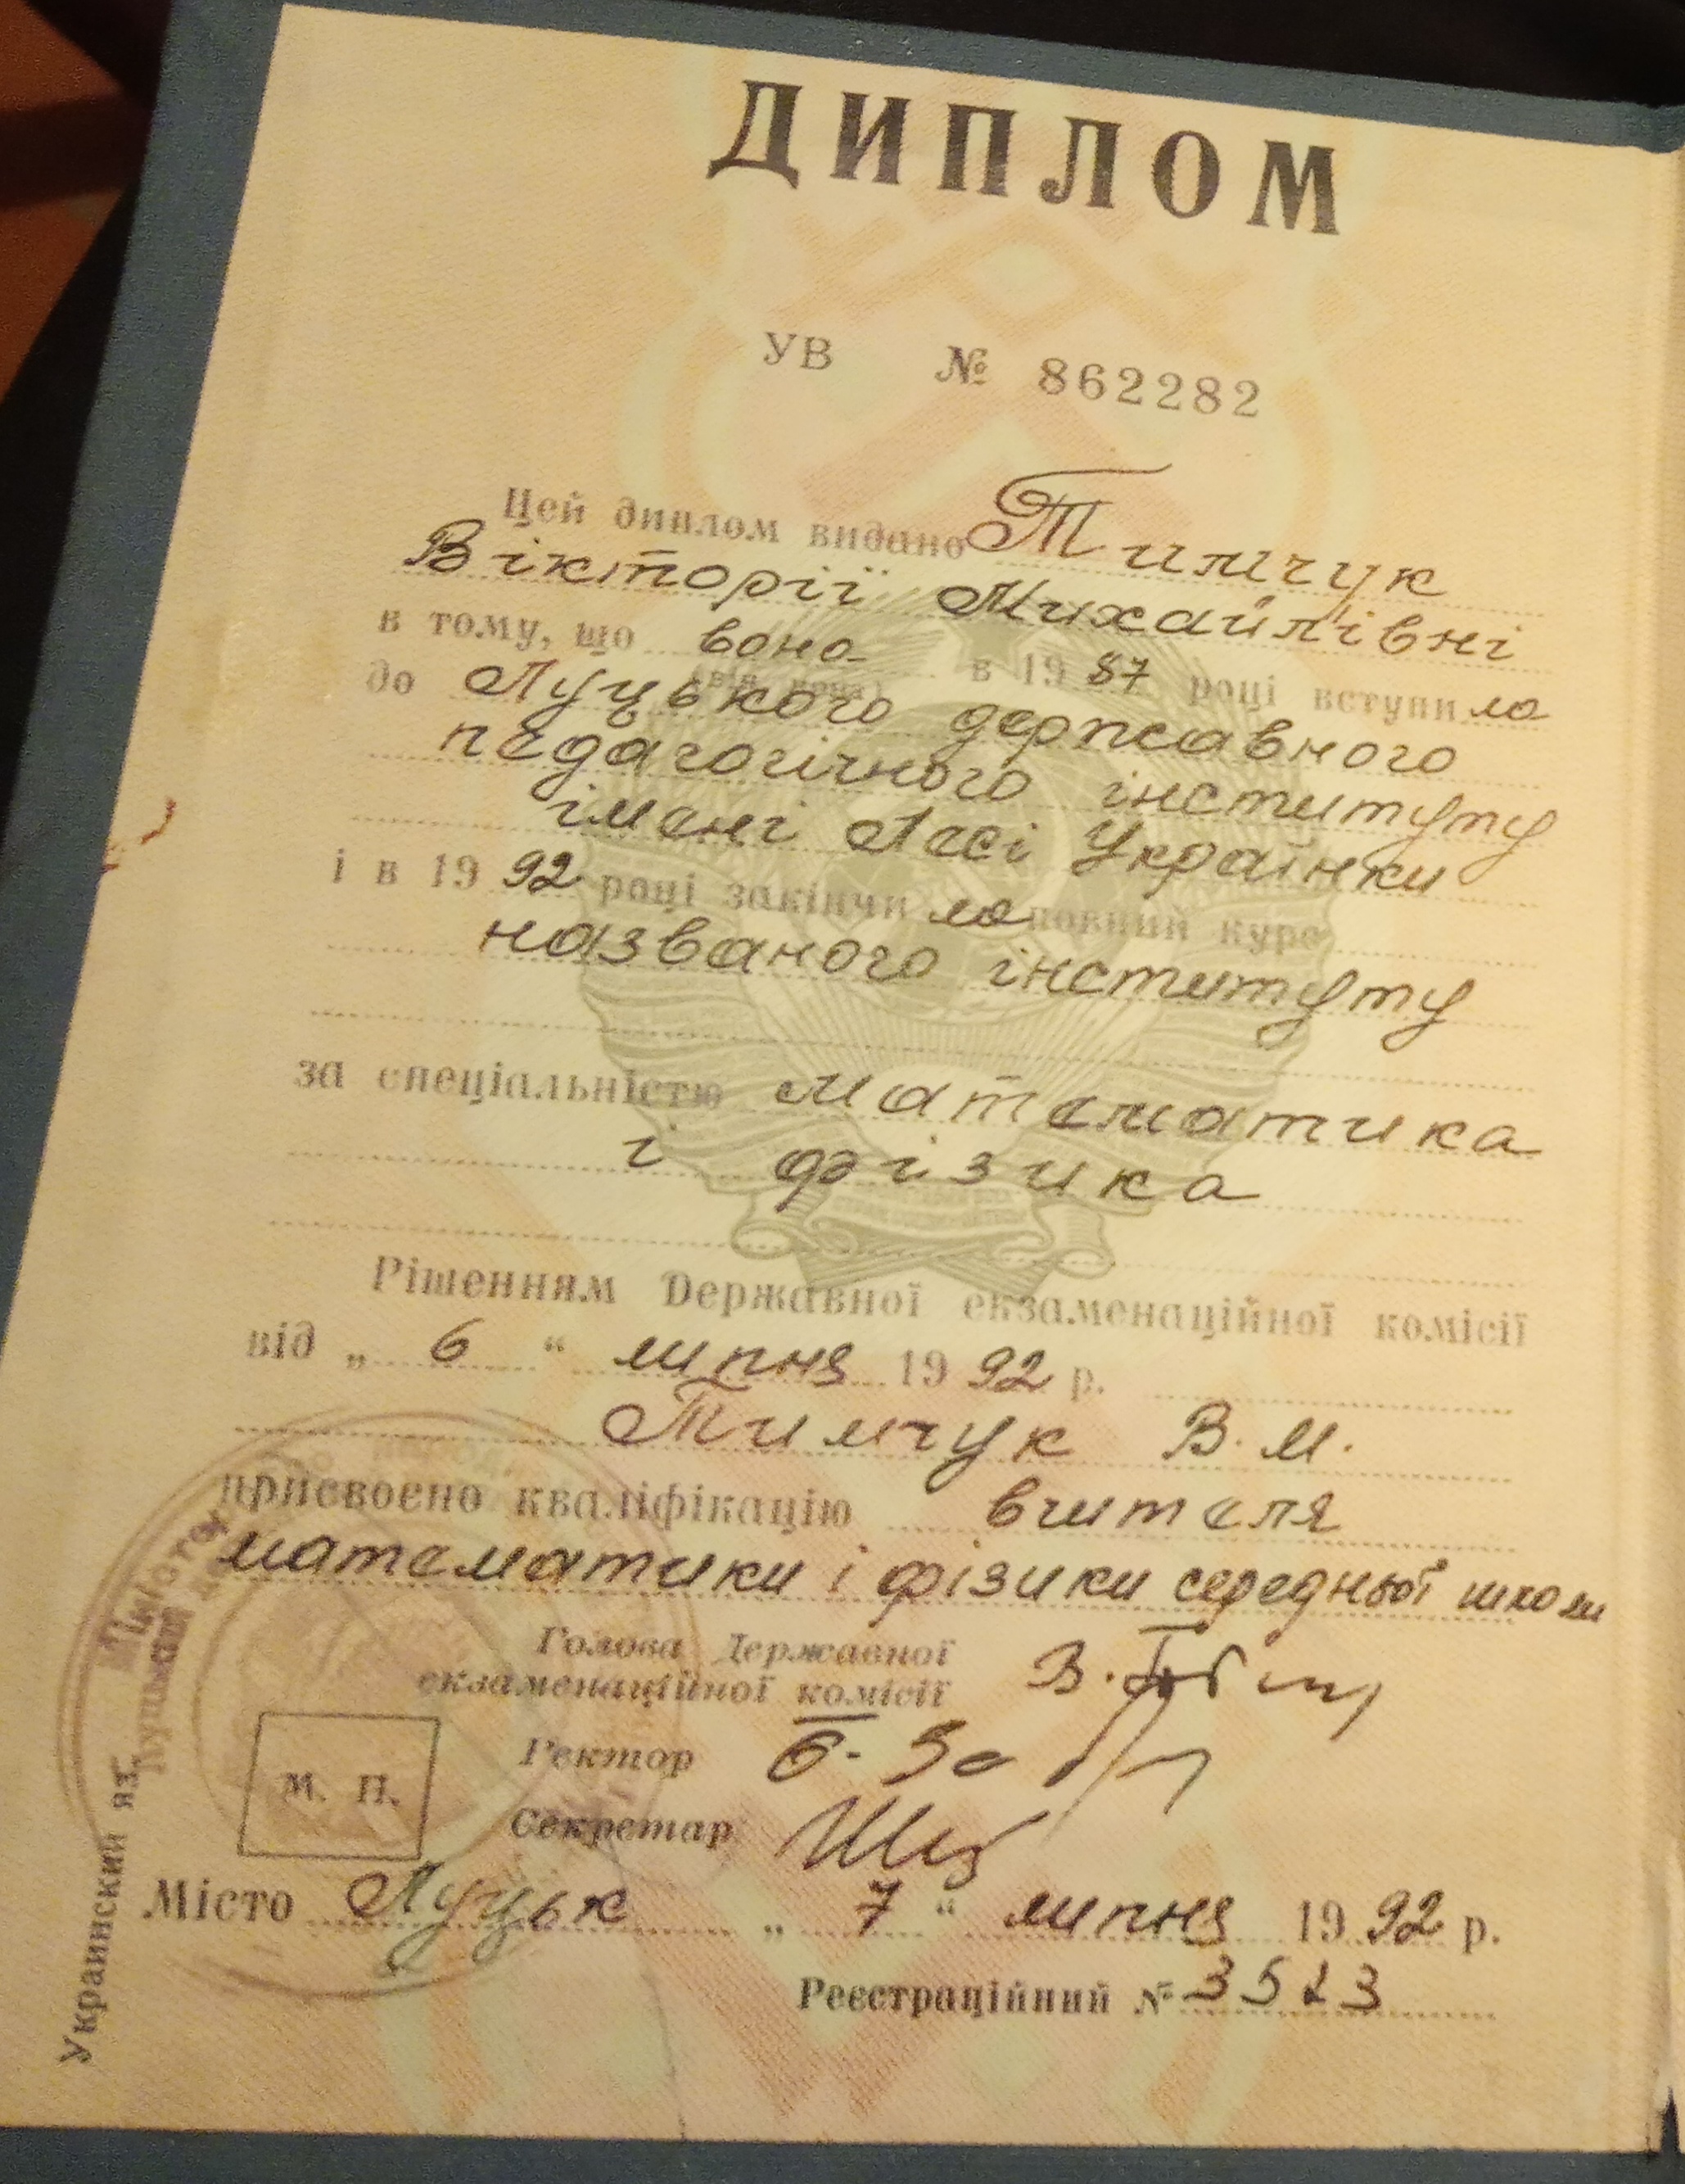 ДИПЛОМ
УВ № 862282
Цей диплом видано Тимчук
Вікторії Михайлівні
в тому, що вона в 19 87 році вступи ла
(він, вона)
до Луцького державного
педагогічного інституту
імені Лесі Українки
і в 19 92 році закінчи ла повний курс
названого інституту
за спеціальністю математика
і фізика
Рішенням Державної екзаменаційної комісії
від „ 6 “ липня 19 92 р.
Тимчук В. М.
присвоєно кваліфікацію вчителя
математики і фізики середньої школи
Голова Державної
екзаменаційної комісії
Ректор
Секретар
М. П.
Місто Луцьк „ 7 “ липня 19 92 р.
Реєстраційний № 3523
Украинский яз.